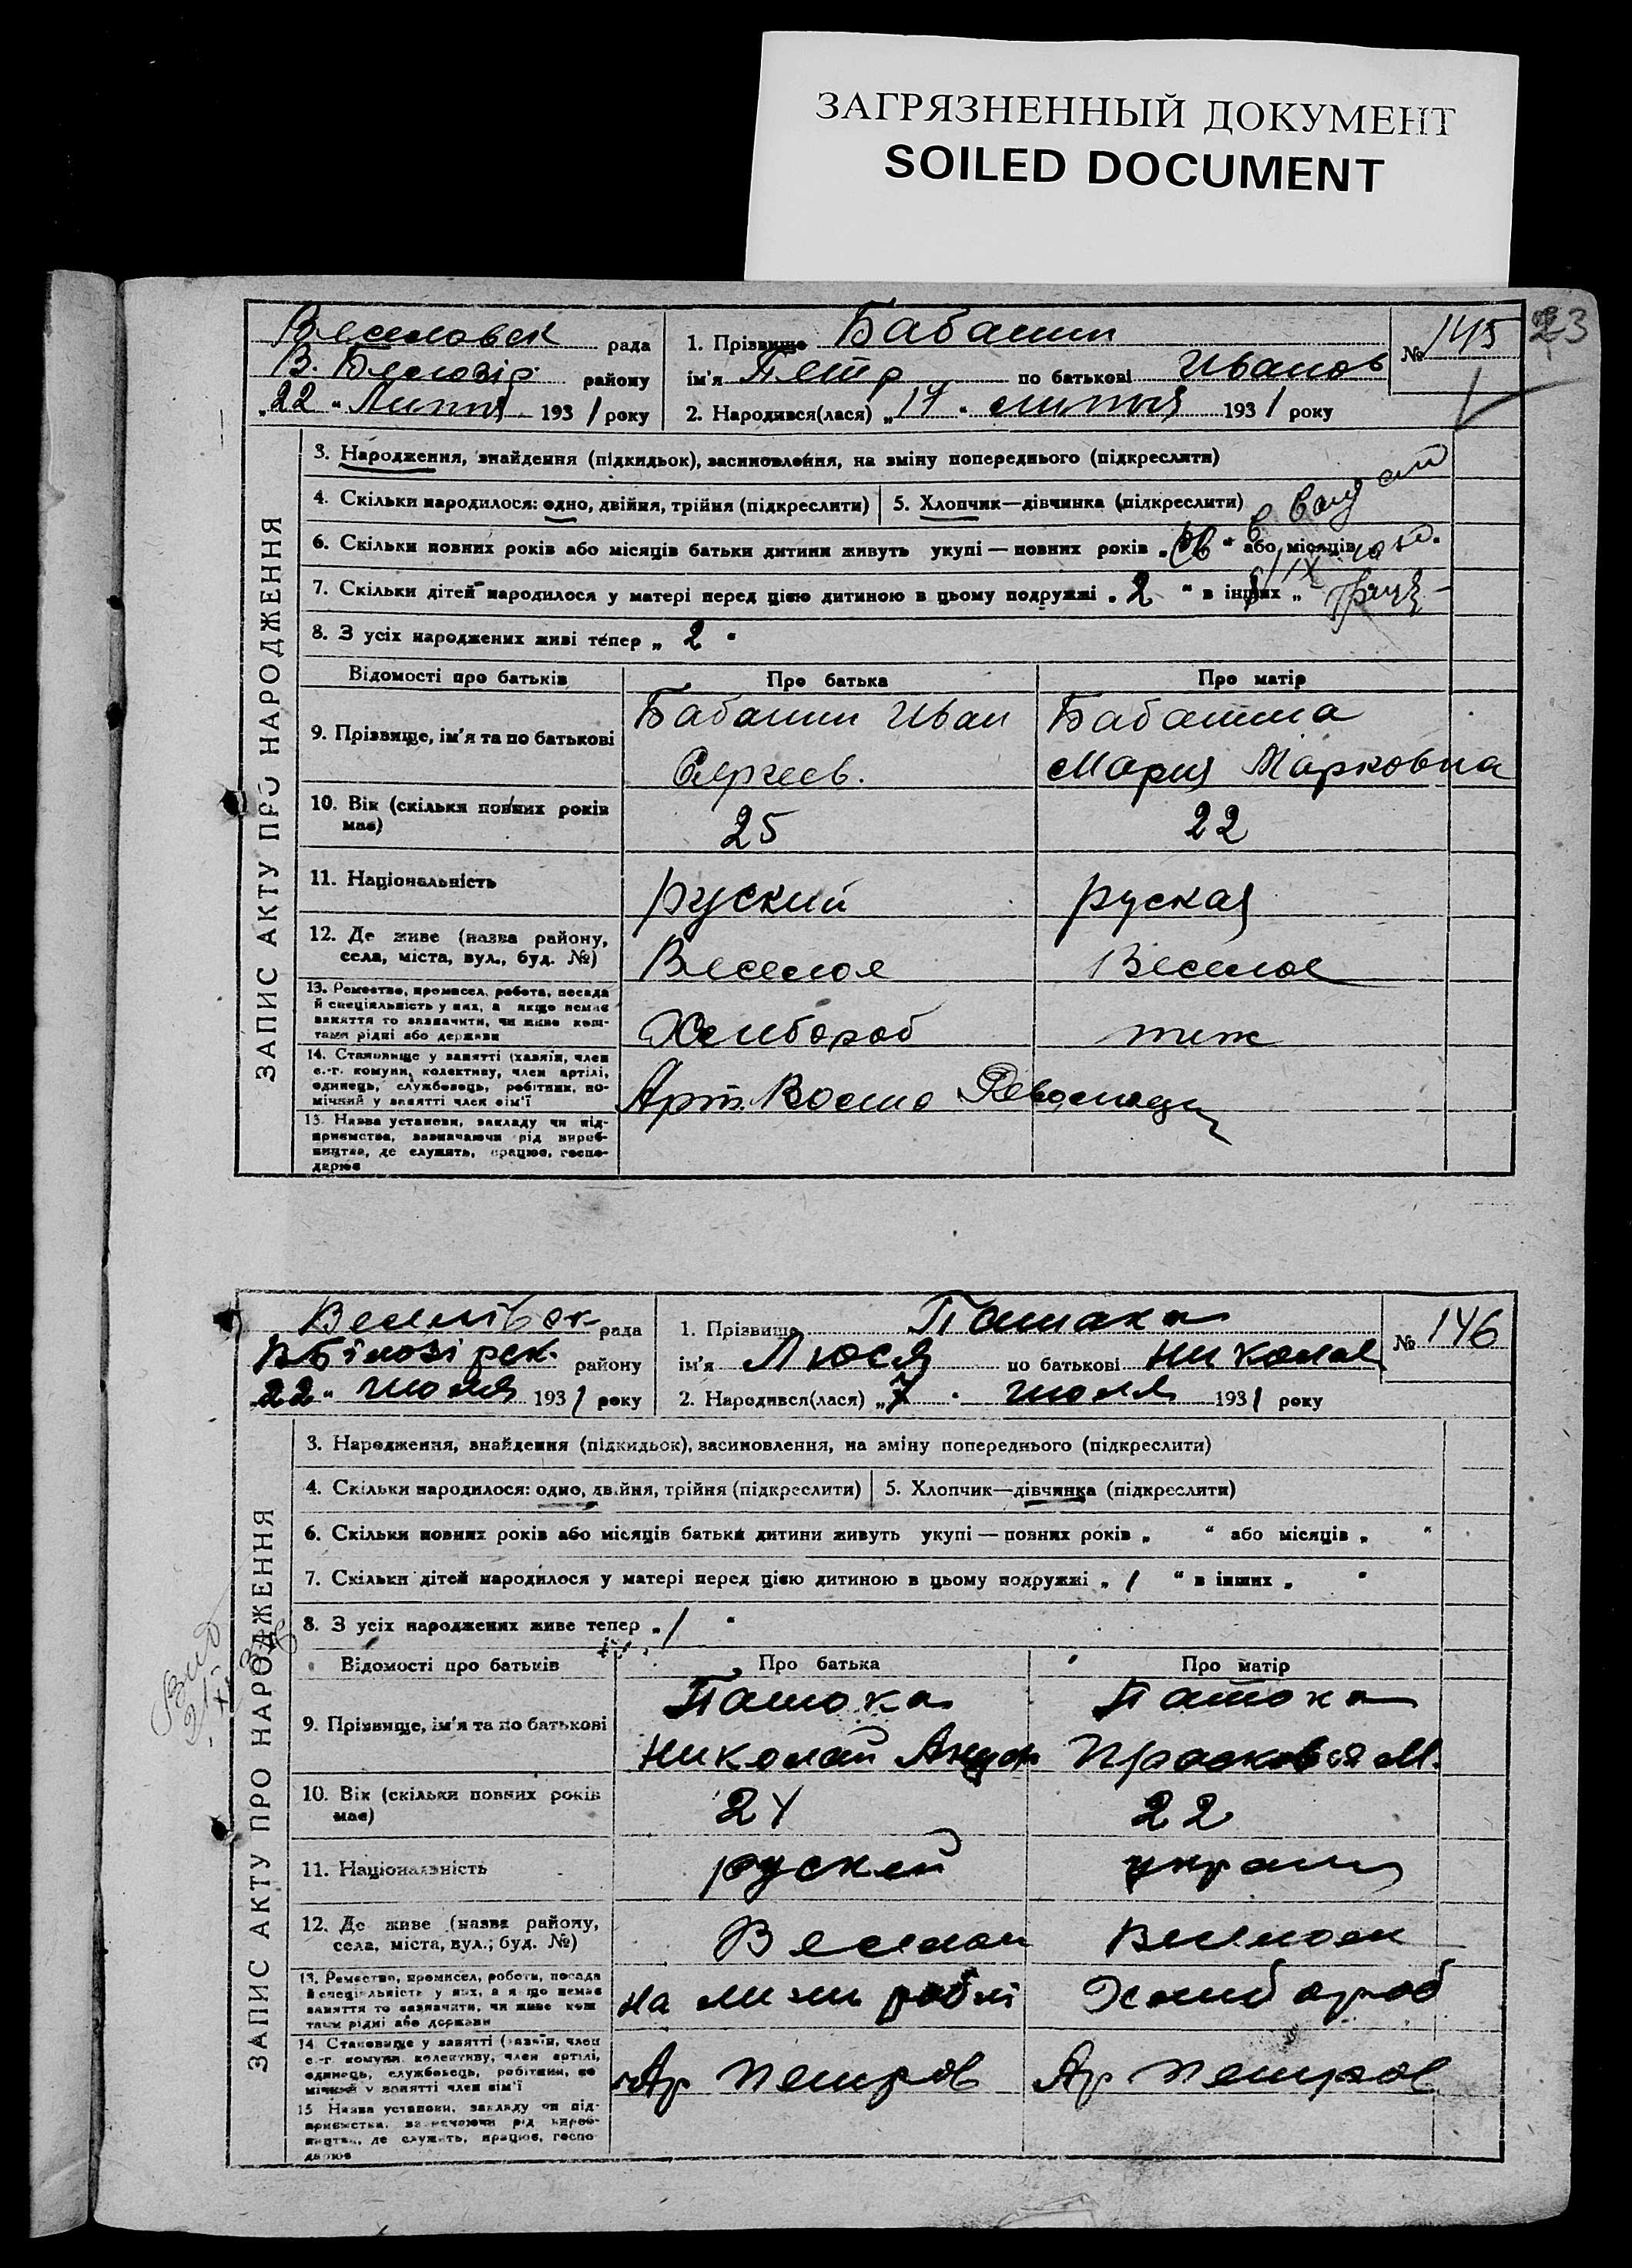 ЗАГРЯЗНЕННЫЙ ДОКУМЕНТ
SOILED DOCUMENT
23
Веселовск рада
В. Білозір. району
„22“ Липня 1931 року
1. Прізвище Бабанин
ім'я Петр по батькові Иванов
№ 145
2. Народився(лася) „17“ липня 1931 року
ЗАПИС АКТУ ПРО НАРОДЖЕННЯ
3. Народження, знайдення (підкидьок), засиновлення, на зміну попереднього (підкреслити)
4. Скільки народилося: одно, двійня, трійня (підкреслити)
5. Хлопчик—дівчинка (підкреслити)
6. Скільки повних років або місяців батьки дитини живуть укупі — повних років „ “ або місяців
7. Скільки дітей народилося у матері перед цією дитиною в цьому подружжі „2“ в інших „
8. З усіх народжених живі тепер „2“
Відомості про батьків
Про батька
Про матір
9. Прізвище, ім'я та по батькові
Бабанин Иван
Сергеев.
Бабанина
Мария Марковна
10. Вік (скільки повних років має)
25
22
11. Національність
руский
руская
12. Де живе (назва району, села, міста, вул., буд. №)
Веселое
Веселое
13. Ремество, промисел, робота, посада й спеціяльність у них, а якщо немає заняття то зазначити, чи живе коштами рідні або держави
Хлибороб
тиж
14. Становище у занятті (хазяїн, член с.-г. комуни, колективу, член артілі, одинець, службовець, робітник, помічний у занятті член сім'ї
Арт. Революци
15. Назва установи, закладу чи підприємства, зазначаючи рід виробництва, де служить, працює, господарює
рада
Вбілозірск. району
22 июля 1931 року
1. Прізвище
ім'я Люся по батькові Николае
№ 146
2. Народився(лася) „7“ июля 1931 року
ЗАПИС АКТУ ПРО НАРОДЖЕННЯ
3. Народження, знайдення (підкидьок), засиновлення, на зміну попереднього (підкреслити)
4. Скільки народилося: одно, двійня, трійня (підкреслити)
5. Хлопчик—дівчинка (підкреслити)
6. Скільки повних років або місяців батьки дитини живуть укупі — повних років „ “ або місяців „ “
7. Скільки дітей народилося у матері перед цією дитиною в цьому подружжі „1“ в інших „ “
8. З усіх народжених живе тепер „1“
Відомості про батьків
Про батька
Про матір
9. Прізвище, ім'я та по батькові
Патока
Николай
Патока
Прасковья М.
10. Вік (скільки повних років має)
24
22
11. Національність
руский
12. Де живе (назва району, села, міста, вул.; буд. №)
13. Ремество, промисел, робота, посада й спеціяльність у них, а якщо немає заняття то зазначити, чи живе коштами рідні або держави
на
Хлибороб
14. Становище у занятті (хазяїн, член с.-г. комуни, колективу, член артілі, одинець, службовець, робітник, помічний у занятті член сім'ї
Ар Петров
Ар Петров
15. Назва установи, закладу чи підприємства, зазначаючи рід виробництва, де служить, працює, господарює